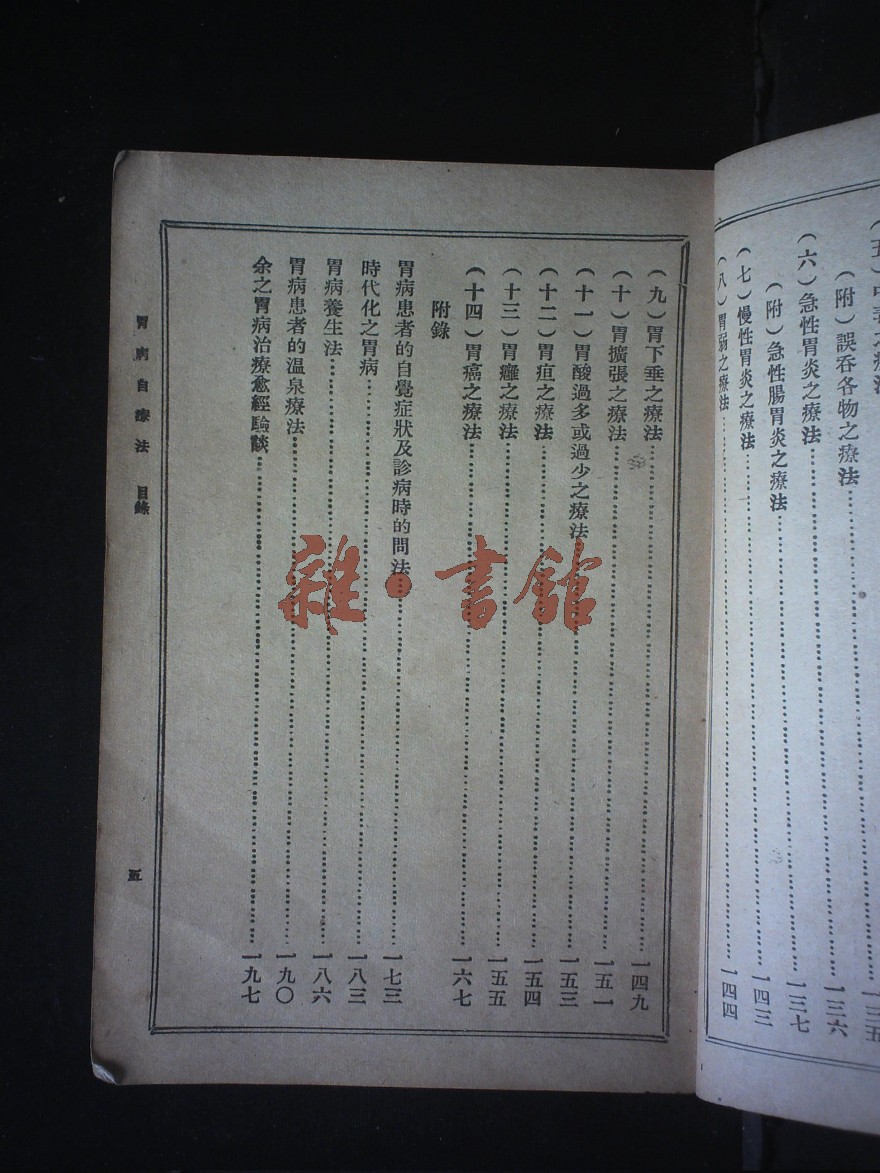 (附)誤吞各物之療法……一三六
(六)急性胃炎之療法……一三七
(附)急性腸胃炎之療法……一四三
(七)慢性胃炎之療法
(八)胃弱之療法……一四四
(九)胃下垂之療法……一四九
(十)胃擴張之療法……一五一
(十一)胃酸過多或過少之療法……一五三
(十二)胃疽之療法……一五四
(十三)胃癰之療法……一五五
(十四)胃癌之療法……一六七
附錄
胃病患者的自覺症狀及診病時的問法……一七三
時代化之胃病……一八三
胃病養生法……一八六
胃病患者的溫泉療法……一九〇
余之胃病治療愈經驗談……一九七
胃病自療法 目錄
五
雜·書館